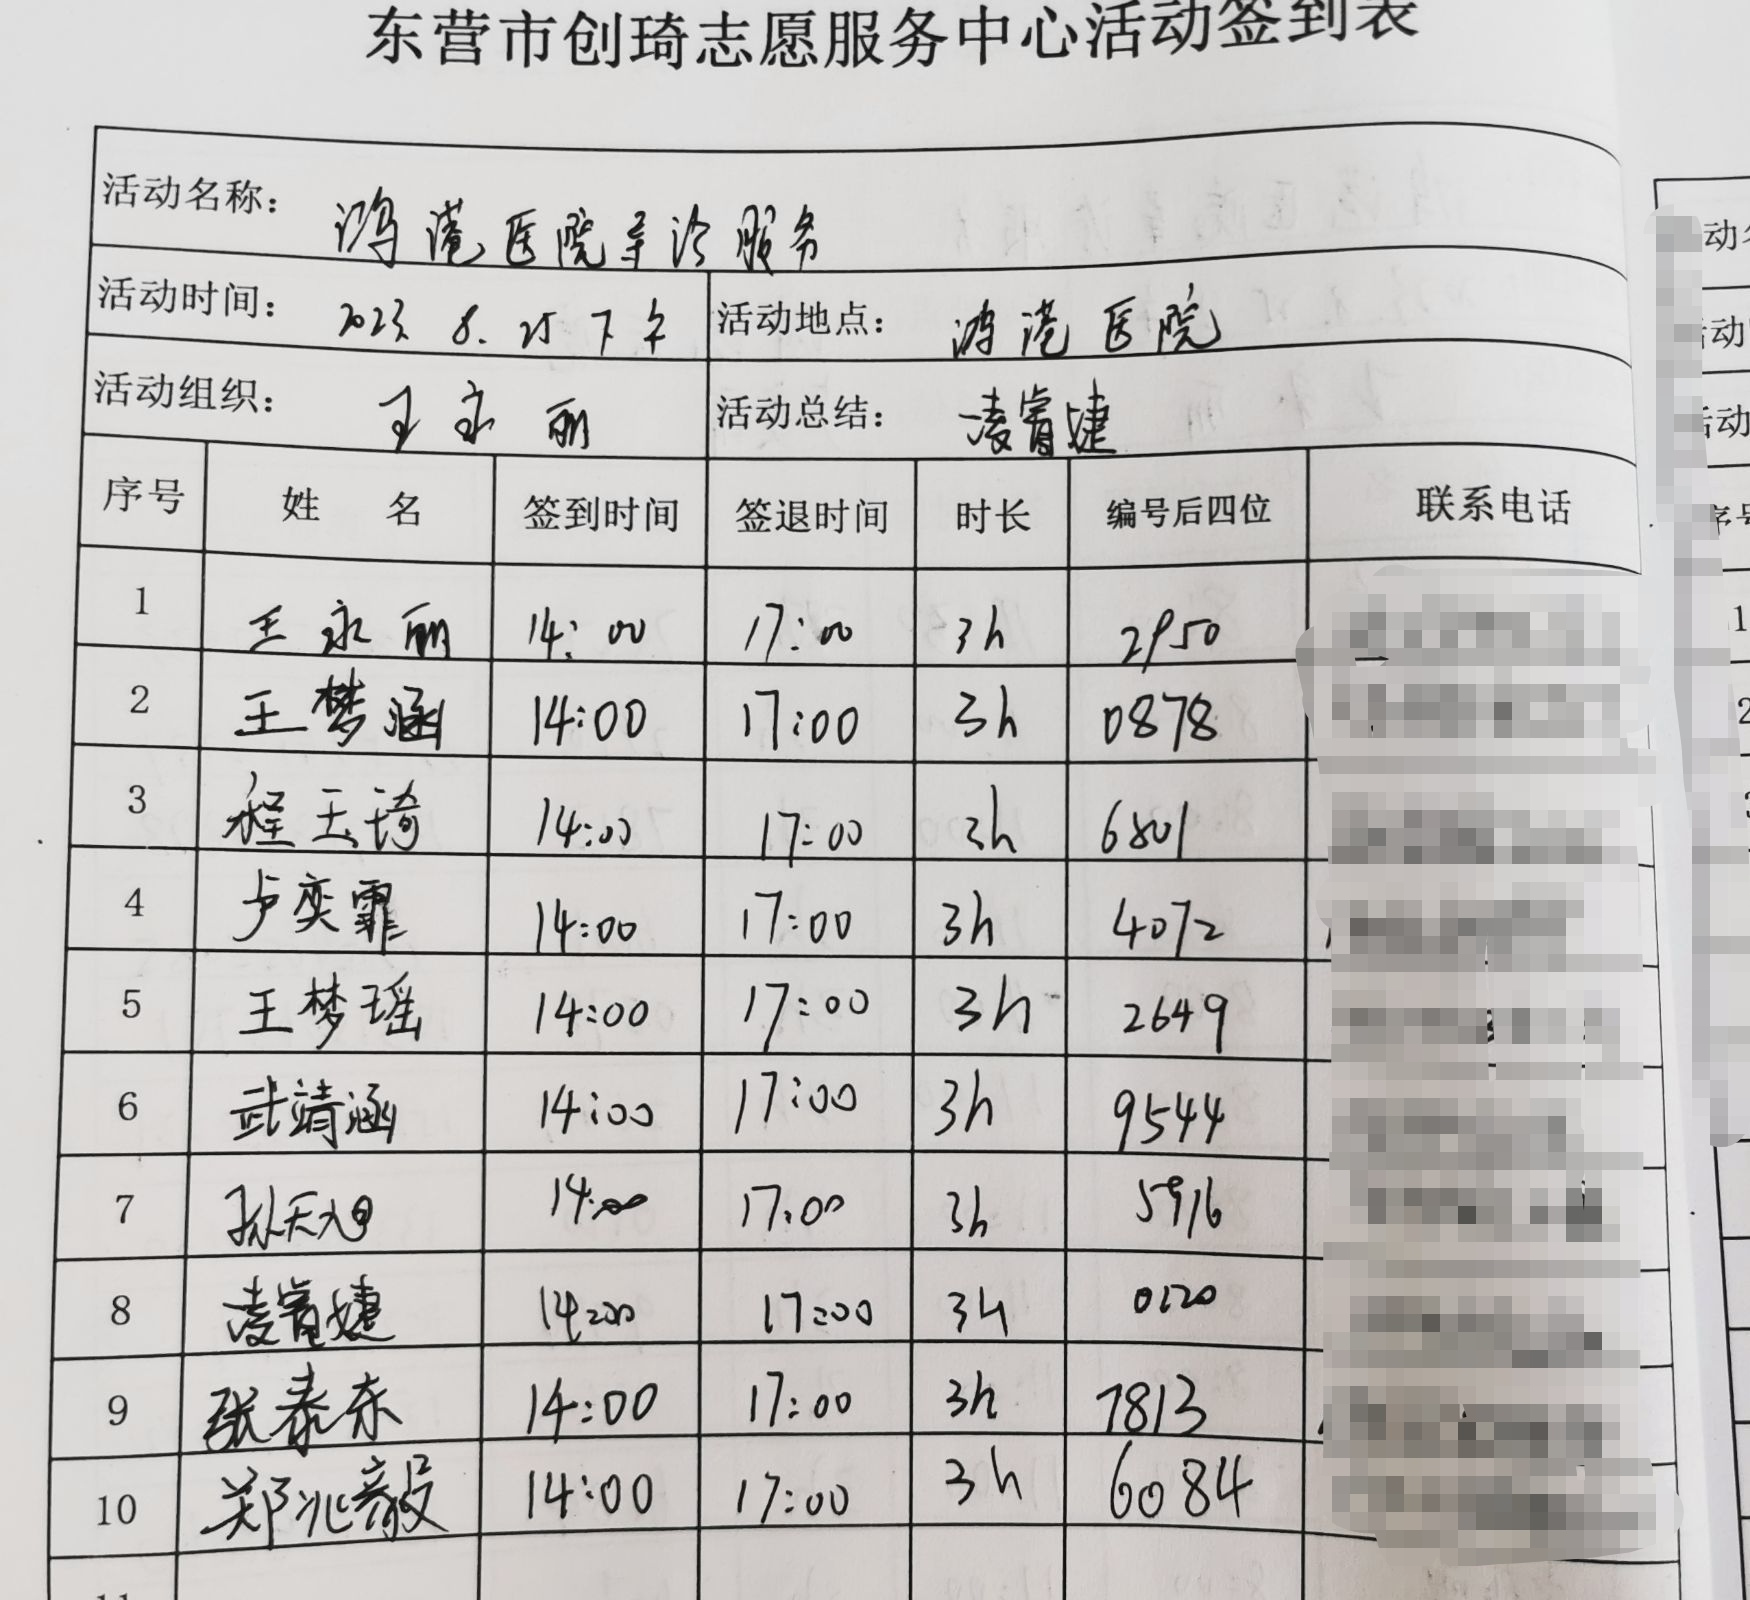 东营市创琦志愿服务中心活动签到表
活动名称： 鸿港医院导诊服务
活动时间： 2023. 8. 25 下午 活动地点： 鸿港医院
活动组织： 王永丽 活动总结： 凌睿婕
序号 姓 名 签到时间 签退时间 时长 编号后四位 联系电话
1 王永丽 14:00 17:00 3h 2950
2 王梦涵 14:00 17:00 3h 0878
3 程玉琦 14:00 17:00 3h 6801
4 卢奕霏 14:00 17:00 3h 4072
5 王梦瑶 14:00 17:00 3h 2649
6 武靖涵 14:00 17:00 3h 9544
7 孙天旭 14:00 17:00 3h 5916
8 凌睿婕 14:00 17:00 3h 0120
9 张泰东 14:00 17:00 3h 7813
10 郑兆毅 14:00 17:00 3h 6084
11